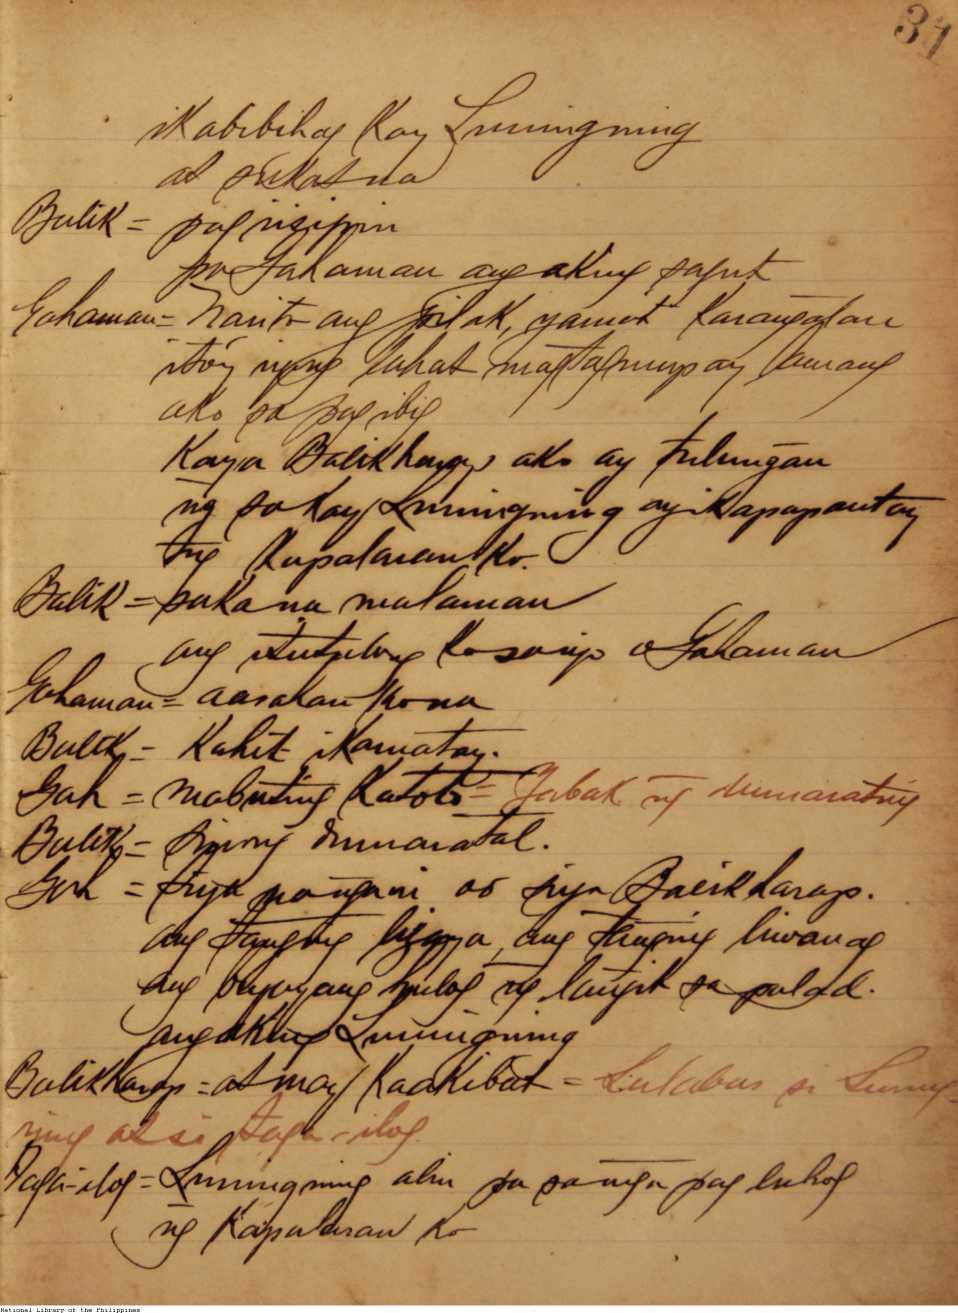 31
ikabibihag kay Luningning
at sukat na
Balik = pag iisipin
po Gahaman ang aking sagut
Gahaman = Narito ang pilak, yamot karangalan
ito'y iyong lahat magtagumpay lamang
ako sa pag ibig
Kaya Balikharap, ako ay tulungan
ng sa kay Luningning ay ikapapantay
ng kapalaran ko.
Balik = saka na malaman
ang itutulong ko sa iyo o Gahaman
Gahaman = aasahan ko na
Balik = Kahit ikamatay.
Gah = mabuting katoto = Yabak ng dumarating
Balik = sinong dumaratal.
Gah = siya wangari oo siya Balikharap.
ang tanging ligaya, ang tanging liwanag
ang buyayang hulog ng langit sa palad.
ang aking Luningning
Balikharap = at may kaakibat = Lalabas si Luning-
ning at si Taga-ilog
Taga-ilog = Luningning alin pa sa mga pag luhog
ng kapalaran ko
National Library of the Philippines